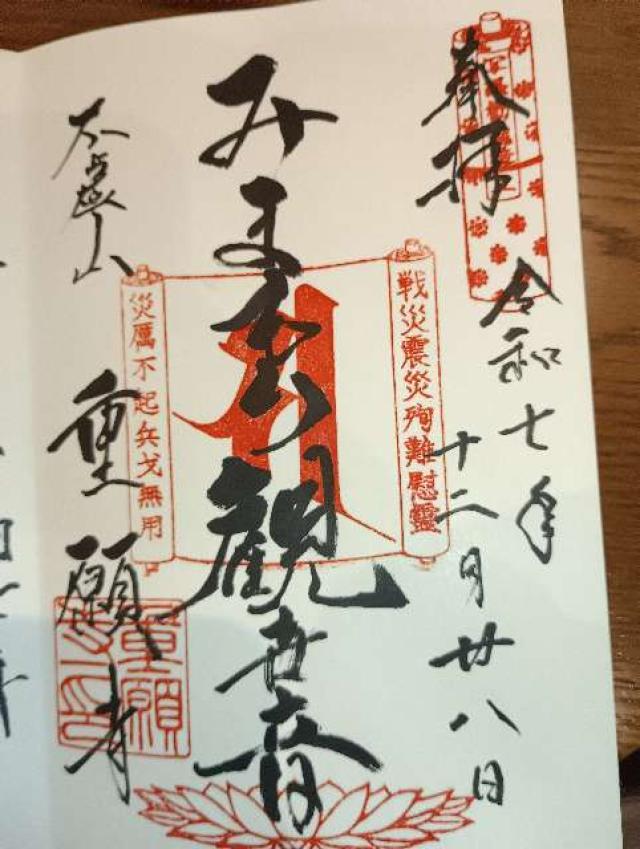 奉拝
令和七年
十二月廿八日
戦災震災殉難慰霊
みまもり観世音
災厲不起兵戈無用
重願寺